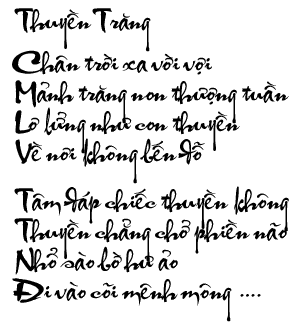 Thuyền Trăng
Chân trời xa vời vợi
Mảnh trăng non thượng tuần
Lơ lửng như con thuyền
Về nơi không bến đỗ
Tâm đáp chiếc thuyền không
Thuyền chẳng chở phiền não
Nhổ sào bờ hư ảo
Đi vào cõi mênh mông ....